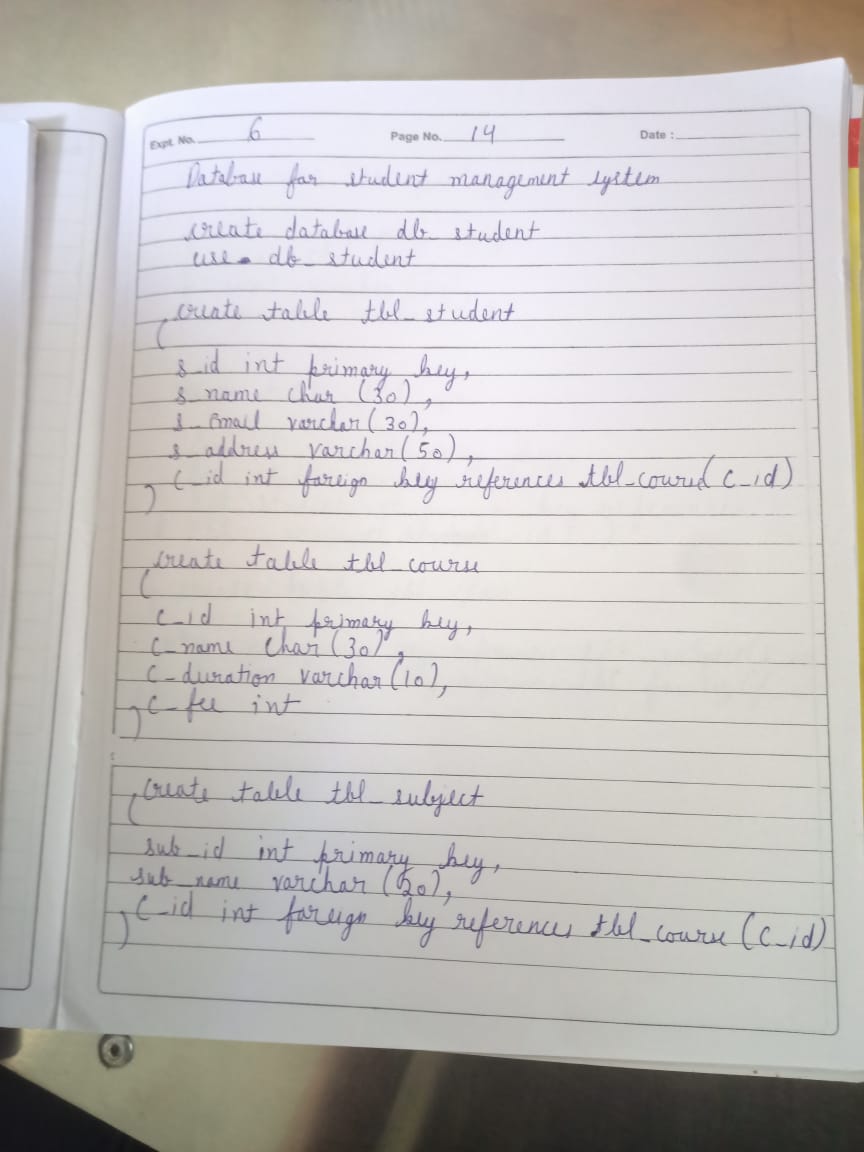 Expt. No. 6 Page No. 14 Date :
Database for student management system
create database db_student
use db_student
create table tbl_student
(
s_id int primary key,
s_name char (30),
s_email varchar (30),
s_address varchar (50),
c_id int foreign key references tbl_course(c_id)
)
create table tbl_course
(
c_id int primary key,
c_name char (30),
c_duration varchar (10),
c_fee int
)
create table tbl_subject
(
sub_id int primary key,
sub_name varchar (20),
c_id int foreign key references tbl_course (c_id)
)